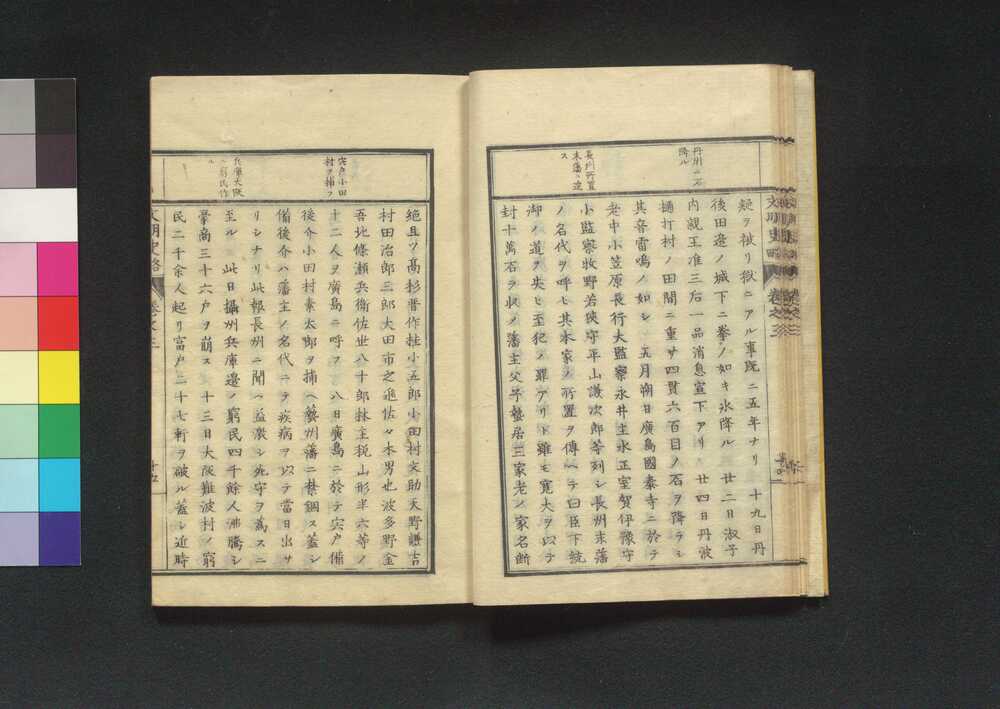 丹州ニ石
降ル
長州所置
末藩ニ達
ス
冤ヲ被リ獄ニアル事既ニ五年ナリ 十九日丹
後田邉ノ城下ニ拳ノ如キ氷降ル 廿二日淑子
内親王准三后一品消息宣下アリ 廿四日丹波
樋打村ノ田間ニ重サ四貫六百目ノ石ヲ降ラシ
其音雷鳴ノ如シ 五月朔日廣島國泰寺ニ於テ
老中小笠原長行大監察永井主水正室賀伊豫守
小監察牧野若狭守平山謙次郎等列シ長州末藩
ノ名代ヲ呼ヒ其本家ノ所置ヲ傳ヘテ曰臣下統
御ノ道ヲ失ヒ至犯ノ罪アリト雖モ寛大ヲ以テ
封十萬石ヲ収メ藩主父子蟄居三家老ノ家名断
文明史略 巻之三
宍戸小田
村ヲ捕フ
兵庫大阪
ニ窮民作
ル
絶且ツ髙杉晋作桂小五郎小田村文助天野謙吉
村田治郎三郎大田市之進佐々木男也波多野金
吾北條瀬兵衛佐世八十郎林主税山形半六等ノ
十二人ヲ廣島ニ呼フ 八日廣島ニ於テ宍戸備
後介小田村素太郎ヲ捕ヘ藝州藩ニ禁錮ス蓋シ
備後介ハ藩主ノ名代ニテ疾病ヲ以テ當日出サ
リシナリ此報長州ニ聞ヘ益激シ死守ヲ爲スニ
至ル 此日攝州兵庫邉ノ窮民四千餘人沸騰シ
豪商三十六戸ヲ崩ス 十三日大阪難波村ノ窮
民二千余人起リ富戸二十七軒ヲ破ル蓋シ近時
文明史略 巻之三